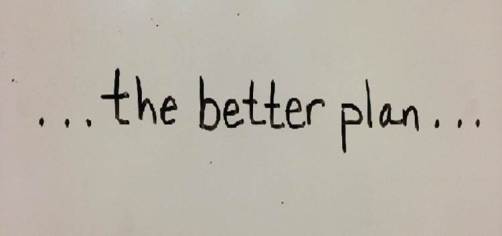 ...the better plan...